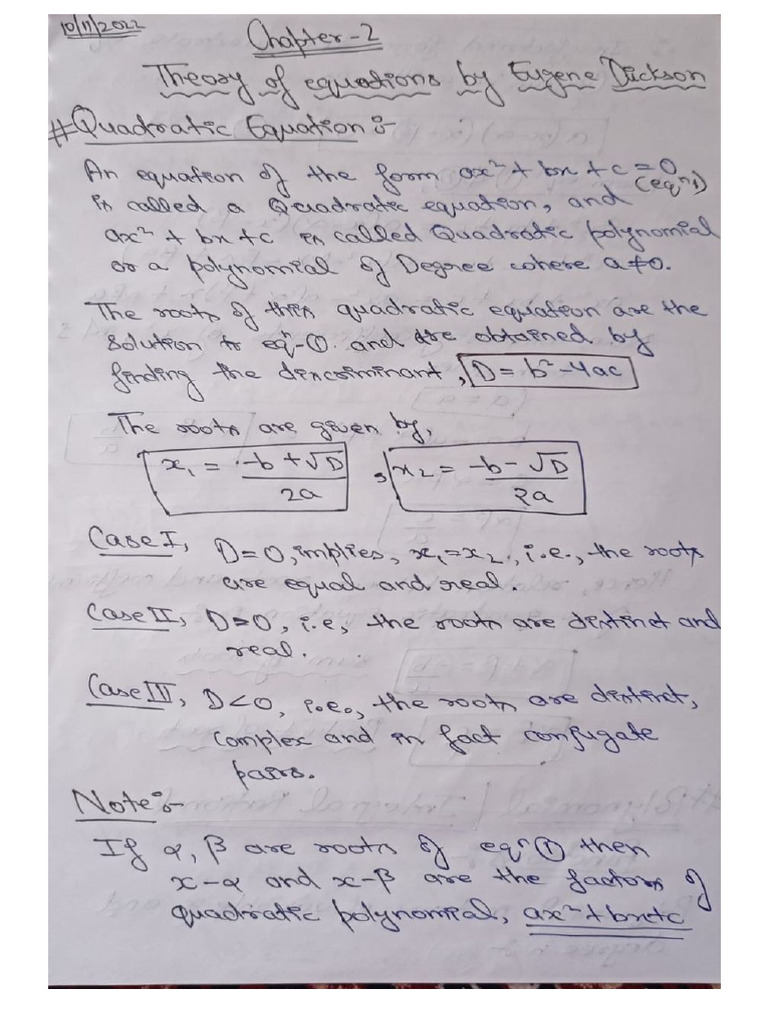 10/11/2022
Chapter-2
Theory of equations by Eugene Dickson
# Quadratic Equation :-
An equation of the form ax² + bx + c = 0 (eqⁿ 1)
is called a Quadratic equation, and
ax² + bx + c is called Quadratic polynomial
or a polynomial of Degree where a≠0.
The roots of this quadratic equation are the
solution to eqⁿ-① and are obtained by
finding the discriminant, D = b² - 4ac
The roots are given by,
x₁ = -b + √D / 2a , x₂ = -b - √D / 2a
Case I, D=0, implies, x₁=x₂, i.e., the roots
are equal and real.
Case II, D>0, i.e, the roots are distinct and
real.
Case III, D<0, i.e., the roots are distinct,
complex and in fact conjugate
pairs.
Note :-
If α, β are roots of eqⁿ ① then
x-α and x-β are the factors of
quadratic polynomial, ax²+bx+c